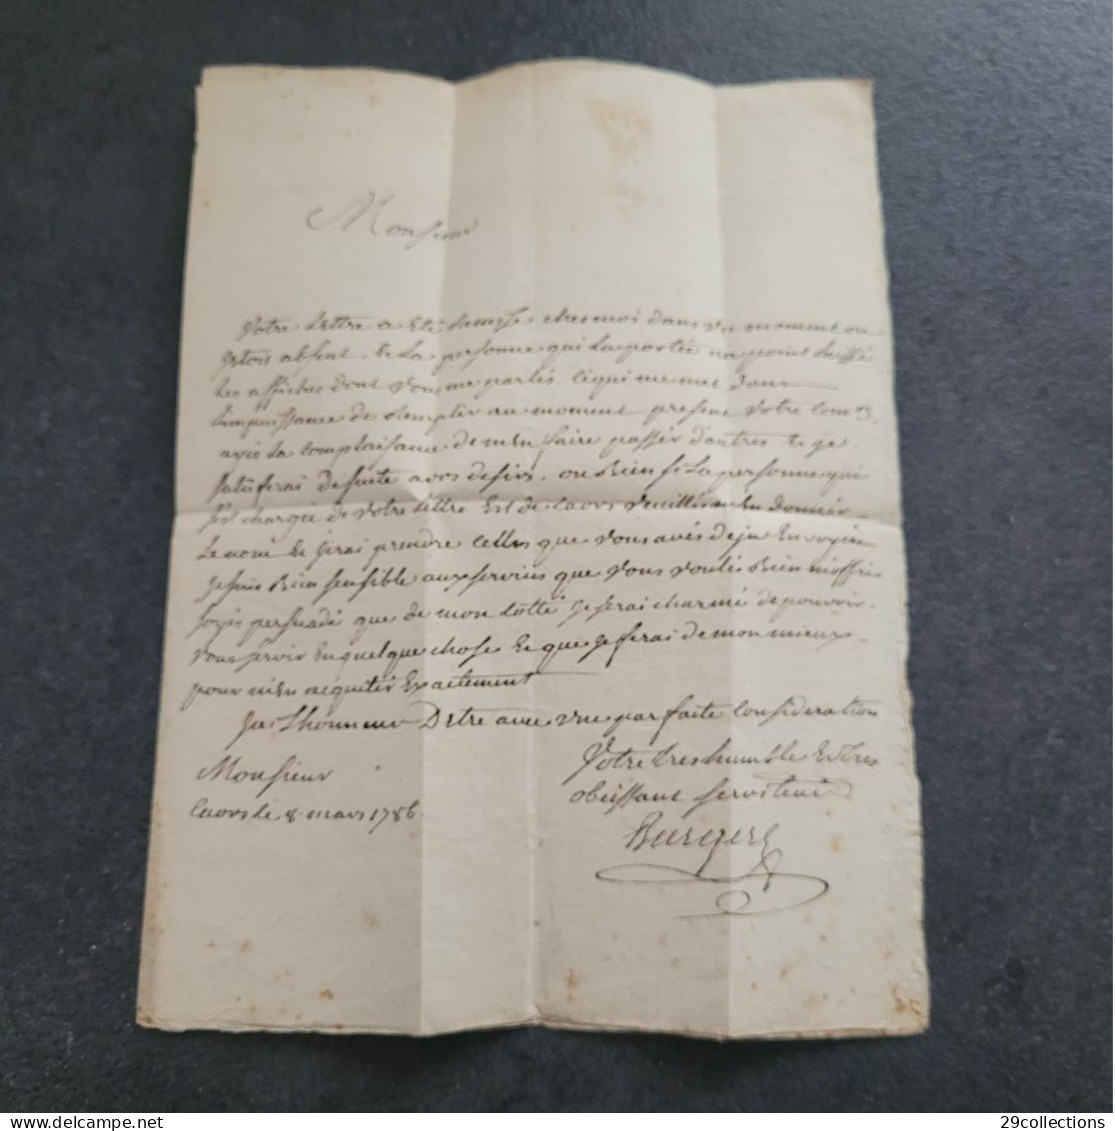 Monsieur
Votre lettre a eté remise ches moi dans un moment ou
jetois absent & la personne qui la portée na point laissé
les affiches dont vous me parlés ce qui me met dans
limpuissance de remplir au moment present votre
ayés la complaisance de men faire passer dautres & je
satisferai de suite a vos desirs. ou bien si la personne qui
sest chargée de votre lettre est de Caors veuillés men donner
le nom & jirai prendre celles que vous avés deja envoyées
je suis bien sensible aux services que vous voulés bien moffrir
soyés persuadé que de mon cotté je serai charmé de pouvoir
vous servir en quelque chose & que je ferai de mon mieux
pour men aquiter exactement
Jai Lhonneur Detre avec une parfaite consideration
Votre tres humble & tres
obeissant serviteur
Monsieur
Caors le 8 mars 1786
Burgere
29collections